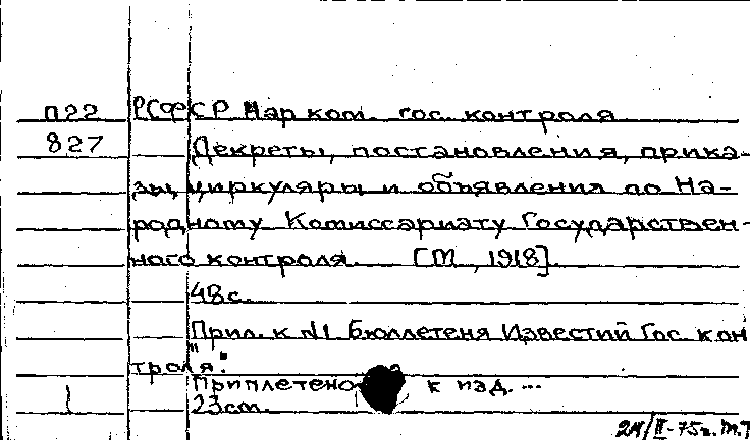 П22 РСФСР Нар ком. гос. контроля
827 Декреты, постановления, прика-
зы, циркуляры и объявления по На-
родному Комиссариату Государствен-
ного контроля. [М, 1918].
48с.
Прил. к №1 Бюллетеня Известий Гос. кон
троля".
Приплетено к изд. ...
23см.